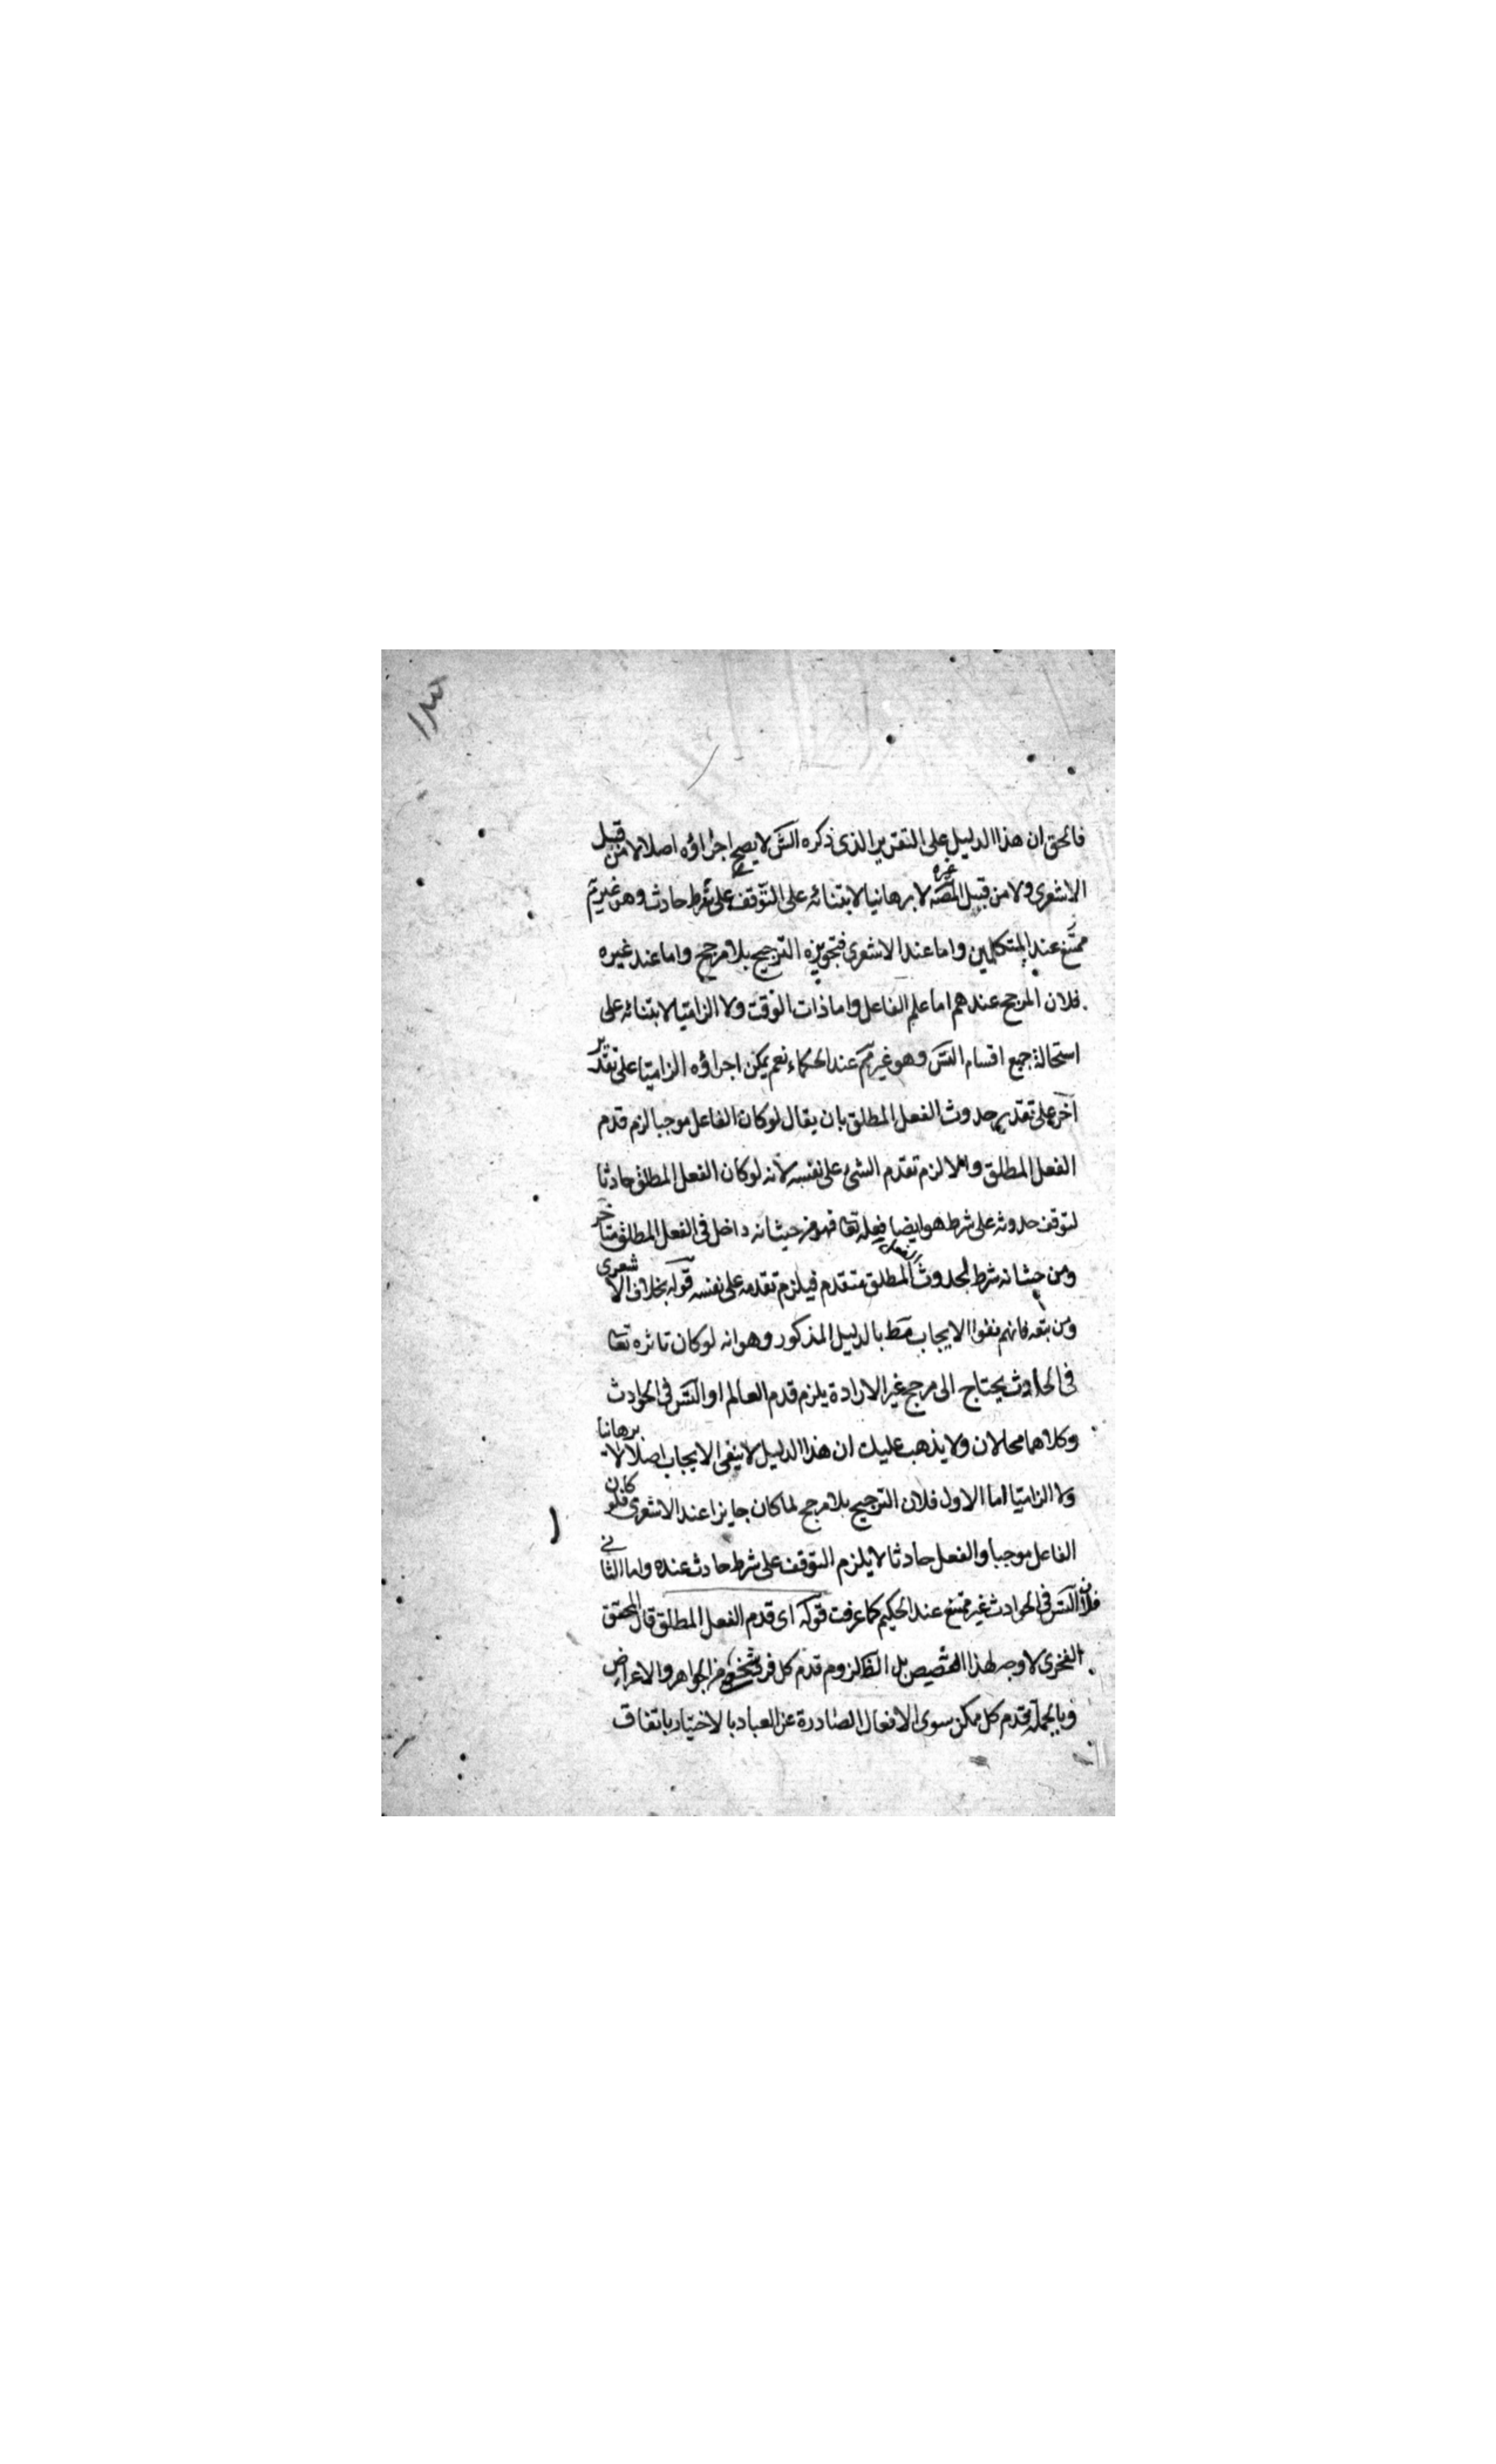 فالحق ان هذا الدليل على التقرير الذى ذكره الش لا يصح اجراؤه اصلا لا من قبل
الاشعرى ولا من قبل المصه غيره لا برهانيا لابتنائه على التوقف على شرط حادث وهو غير تم
ممتنع عند المتكلمين واما عند الاشعرى فتجويزه الترجيح بلا مرجح واما عند غيره
فلان المرجح عندهم اما علم الفاعل واما ذات الوقت ولا الزاميا لابتنائه على
استحالة جميع اقسام التس وهو غير تم عند الحكماء نعم يمكن اجراؤه الزاميا على تقدير
آخر على تقدير حدوث الفعل المطلق بان يقال لو كان الفاعل موجبا لزم قدم
الفعل المطلق والا لزم تقدم الشئ على نفسه لانه لو كان الفعل المطلق حادثا
لتوقف حدوثه على شرط هو ايضا فعله تعا فهو من حيث انه داخل فى الفعل المطلق متاخر
ومن حيث انه شرط لحدوث الفعل المطلق متقدم فيلزم تقدمه على نفسه قوله بخلاف الاشعرى
ومن تبعه فانهم نفوا الايجاب فقط بالدليل المذكور وهو انه لو كان تاثره تعا
فى الحادث يحتاج الى مرجح غير الارادة يلزم قدم العالم او التس فى الحوادث
وكلاهما محالان ولا يذهب عليك ان هذا الدليل لا ينفى الايجاب اصلا لا برهانا
ولا الزاميا اما الاول فلان الترجيح بلا مرجح لما كان جايزا عند الاشعرى فلو كان
الفاعل موجبا والفعل حادثا لا يلزم التوقف على شرط حادث عنده واما الثانى
فلان التس فى الحوادث غير ممتنع عند الحكيم كما عرفت قوله اى قدم الفعل المطلق قال المحقق
الفخرى لا وجه لهذا التخصيص بل الظ لزوم قدم كل فرد شخصى من الجواهر والاعراض
وبالجملة قدم كل ممكن سوى الافعال الصادرة عن العباد بالاختيار باتفاق